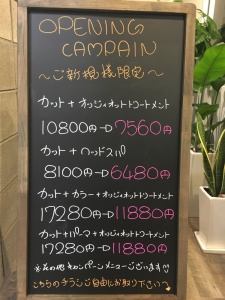 OPENING
CAMPAIN
〜ご新規様限定〜
カット+オッジィオットトリートメント
10800円→7560円
カット+ヘッドスパ
8100円→6480円
カット+カラー+オッジィオットトリートメント
17280円→11880円
カット+パーマ+オッジィオットトリートメント
17280円→11880円
※その他キャンペーンメニューございます
こちらのチラシご自由にお取り下さい〜